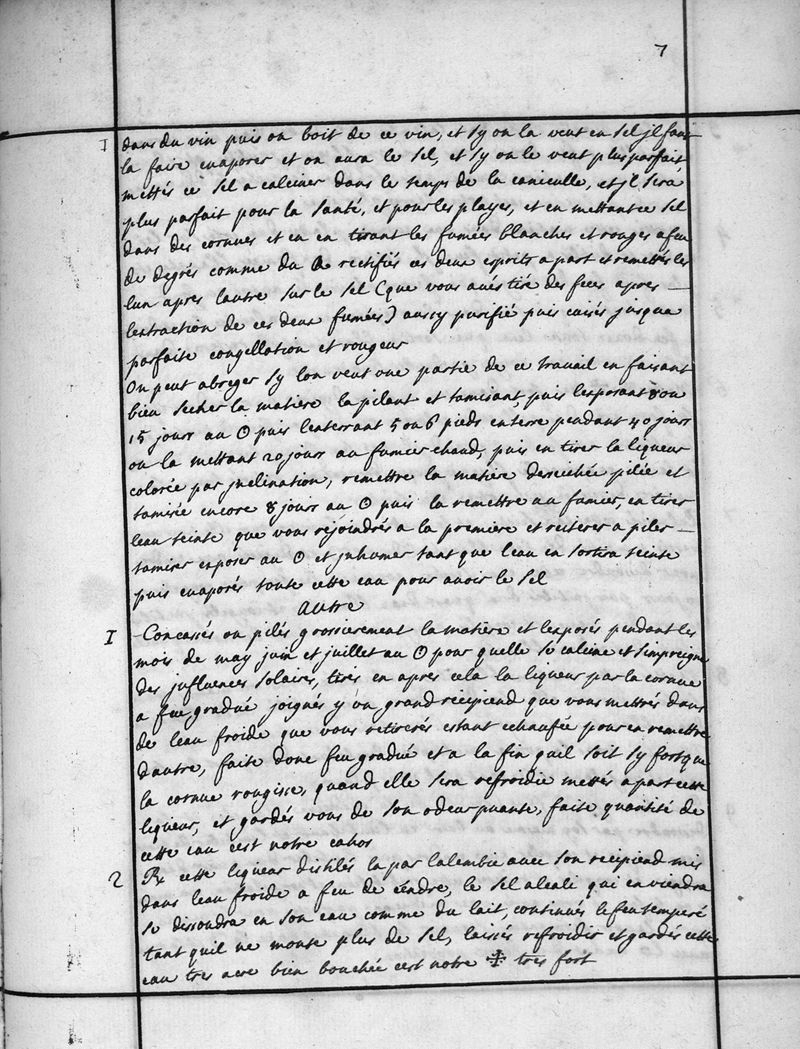 7
1 dans du vin puis on boit de ce vin, et sy on la veut en sel jl faut
la faire euaporer et on aura le sel, et sy on le veut plus parfait
mettés ce sel a calciner dans le temps de la caniculle, et jl sera
plus parfait pour la santé, et pour les playes, et en mettant ce sel
dans des cornues et en en tirant les fumées blanches et rouges a feu
de degrés comme du rectifiés ces deux esprits a part et remettés les
lun apres lautre sur le sel (que vous aués tiré des feces apres
lextraction de ces deux fumées) aussy purifié puis cuisés jusqua
parfaite congellation et rougeur
On peut abreger sy lon veut une partie de ce trauail en faisant
bien secher la matiere la pilant et tamisant, puis lexposant 8 ou
15 jours au ☉ puis lenterrant 5 ou 6 pieds en terre pendant 40 jours
ou la mettant 20 jours au fumier chaud, puis en tirer la liqueur
colorée par jnclination, remettre la matiere desseichée pilée et
tamisée encore 8 jours au ☉ puis la remettre au fumier, en tirer
leau teinte que vous rejoindrés a la premiere et reiterer a piler
tamiser exposer au ☉ et jnhumer tant que leau en sortira teinte
puis euaporés toute cette eau pour auoir le sel
autre
1 Concassés ou pilés grossierement la matiere et lexposés pendant les
mois de may juin et juillet au ☉ pour quelle se calcine et simpreigne
des jnfluences solaires, tirés en apres cela la liqueur par la cornue
a feu gradué joignés y un grand recipiend que vous mettrés dans
de leau froide que vous retirerés estant echaufée pour en remettre
dautre, faite donc feu gradué et a la fin quil soit sy fort que
la cornue rougisse, quand elle sera refroidie mettés a part cette
liqueur, et gardés vous de son odeur puante, faite quantité de
cette eau cest notre cahos
2 ℞ cette liqueur distilés la par lalembic auec son recipiend mis
dans leau froide a feu de cendre, le sel alcali qui en viendra
se dissoudra en son eau comme du lait, continués le feu temperé
tant quil ne monte plus de sel, laissés refroidir et gardés cette
eau tres acre bien bouchée cest notre tres fort